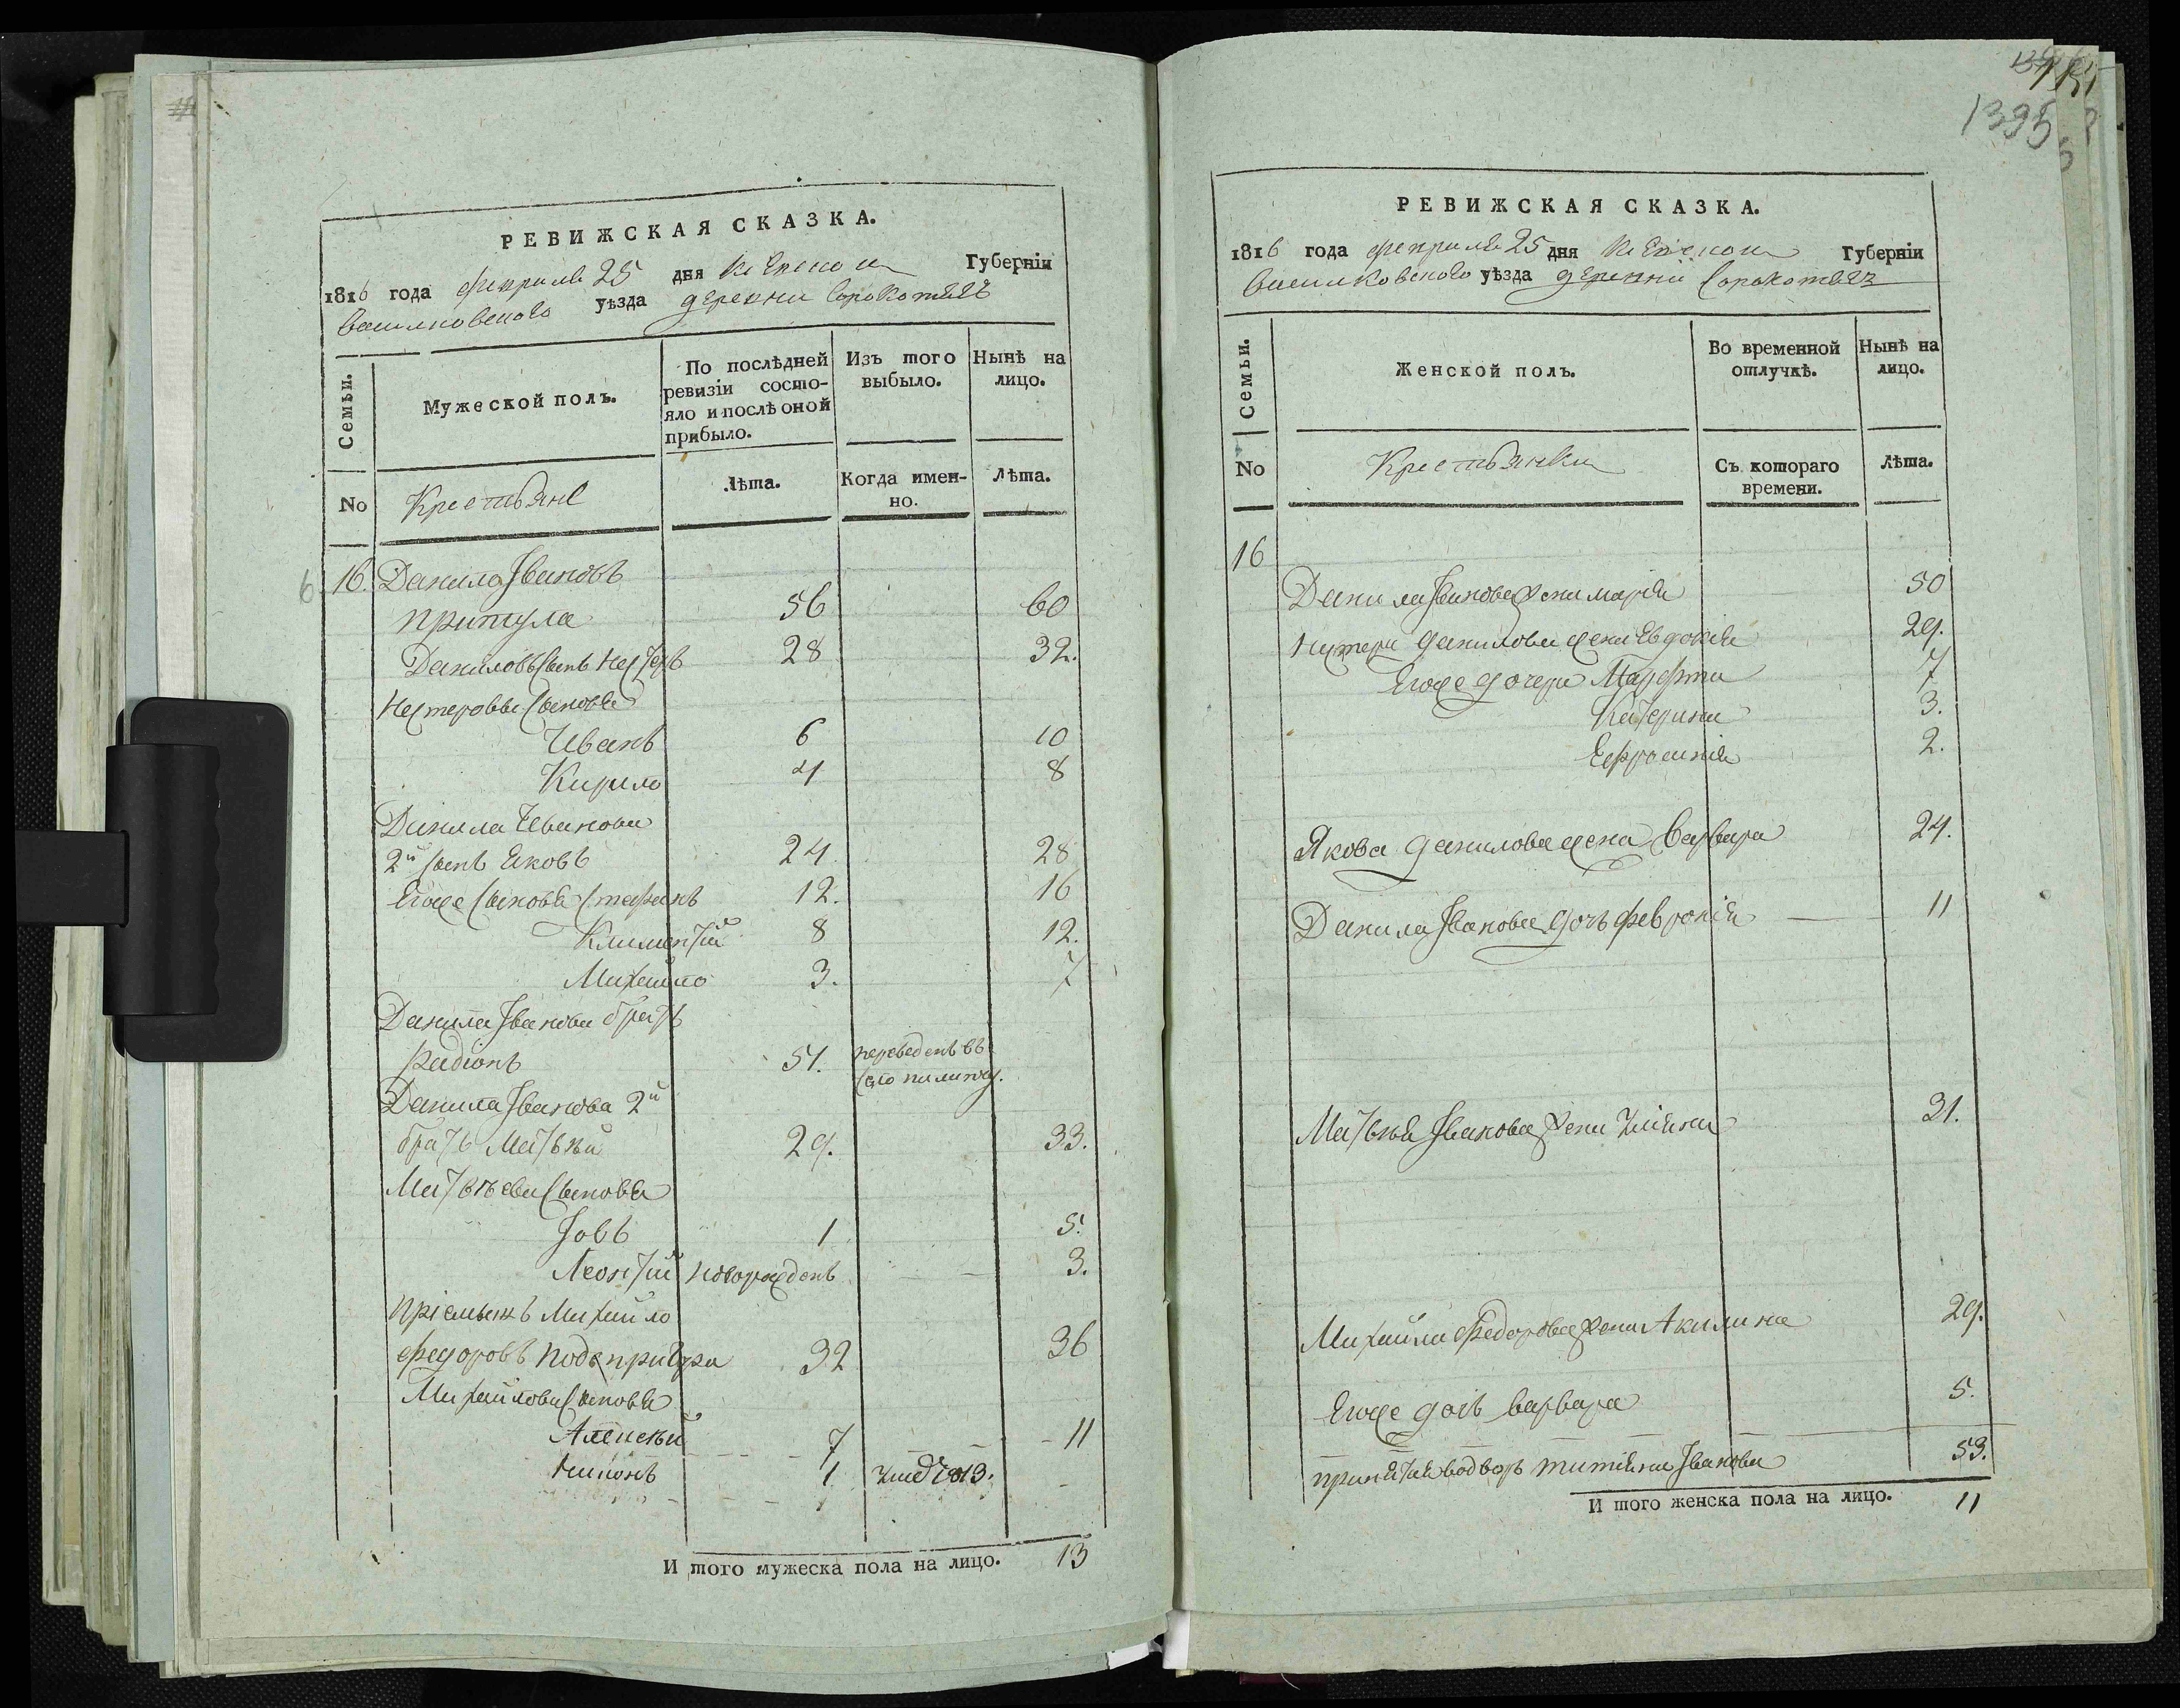 РЕВИЖСКАЯ СКАЗКА.
1816 года февраля 25 дня Киевской Губерніи
Васильковского уѣзда деревни Сорокотягъ
Семьи.
Мужеской полъ.
По послѣдней ревизіи состояло и послѣ оной прибыло.
Изъ того выбыло.
Нынѣ на лицо.
No
Крестьяне
лѣта.
Когда именно.
лѣта.
16. Данило Івановъ
притула 56 60
Даниловъ сынъ Нестеръ 28 32.
Нестеровы сыновья
Иванъ 6 10
Кирило 4 8
Данила Иванова
2й сынъ Яковъ 24. 28
Егоже сыновья Стефанъ 12. 16
Климентій 8 12.
Михайло 3. 7
Данила Іванова братъ
Радіонъ 51. переведенъ въ
село
Данила Іванова 2й
братъ Матвѣй 29. 33.
Матвѣева сыновья
Іовъ 1 5.
Леонтій новорожденъ 3.
Пріемышъ Михайло
Федоровъ 32 36
Михайлова сыновья
Алексѣй 7 11
1. 1813.
И того мужеска пола на лицо. 13
1395
РЕВИЖСКАЯ СКАЗКА.
1816 года февраля 25 дня Киевской Губерніи
Васильковского уѣзда деревни Сорокотягъ
Семьи.
Женской полъ.
Во временной отлучкѣ.
Нынѣ на лицо.
No
Крестьянки
Съ котораго времени.
лѣта.
16
Данила Іванова жена марія 50
Нестера данилова жена Евдокія 29.
Егоже дочери Марфта 7
Катерина 3.
Ефросинія 2.
Якова данилова жена Варвара 24.
Данила Іванова дочь февронія 11
Матвѣя Іванова жена Уліяна 31.
Михайла Федорова жена Акилина 29.
Егоже дочь варвара 5.
принятая водворъ титіяна Іванова 53.
И того женска пола на лицо. 11